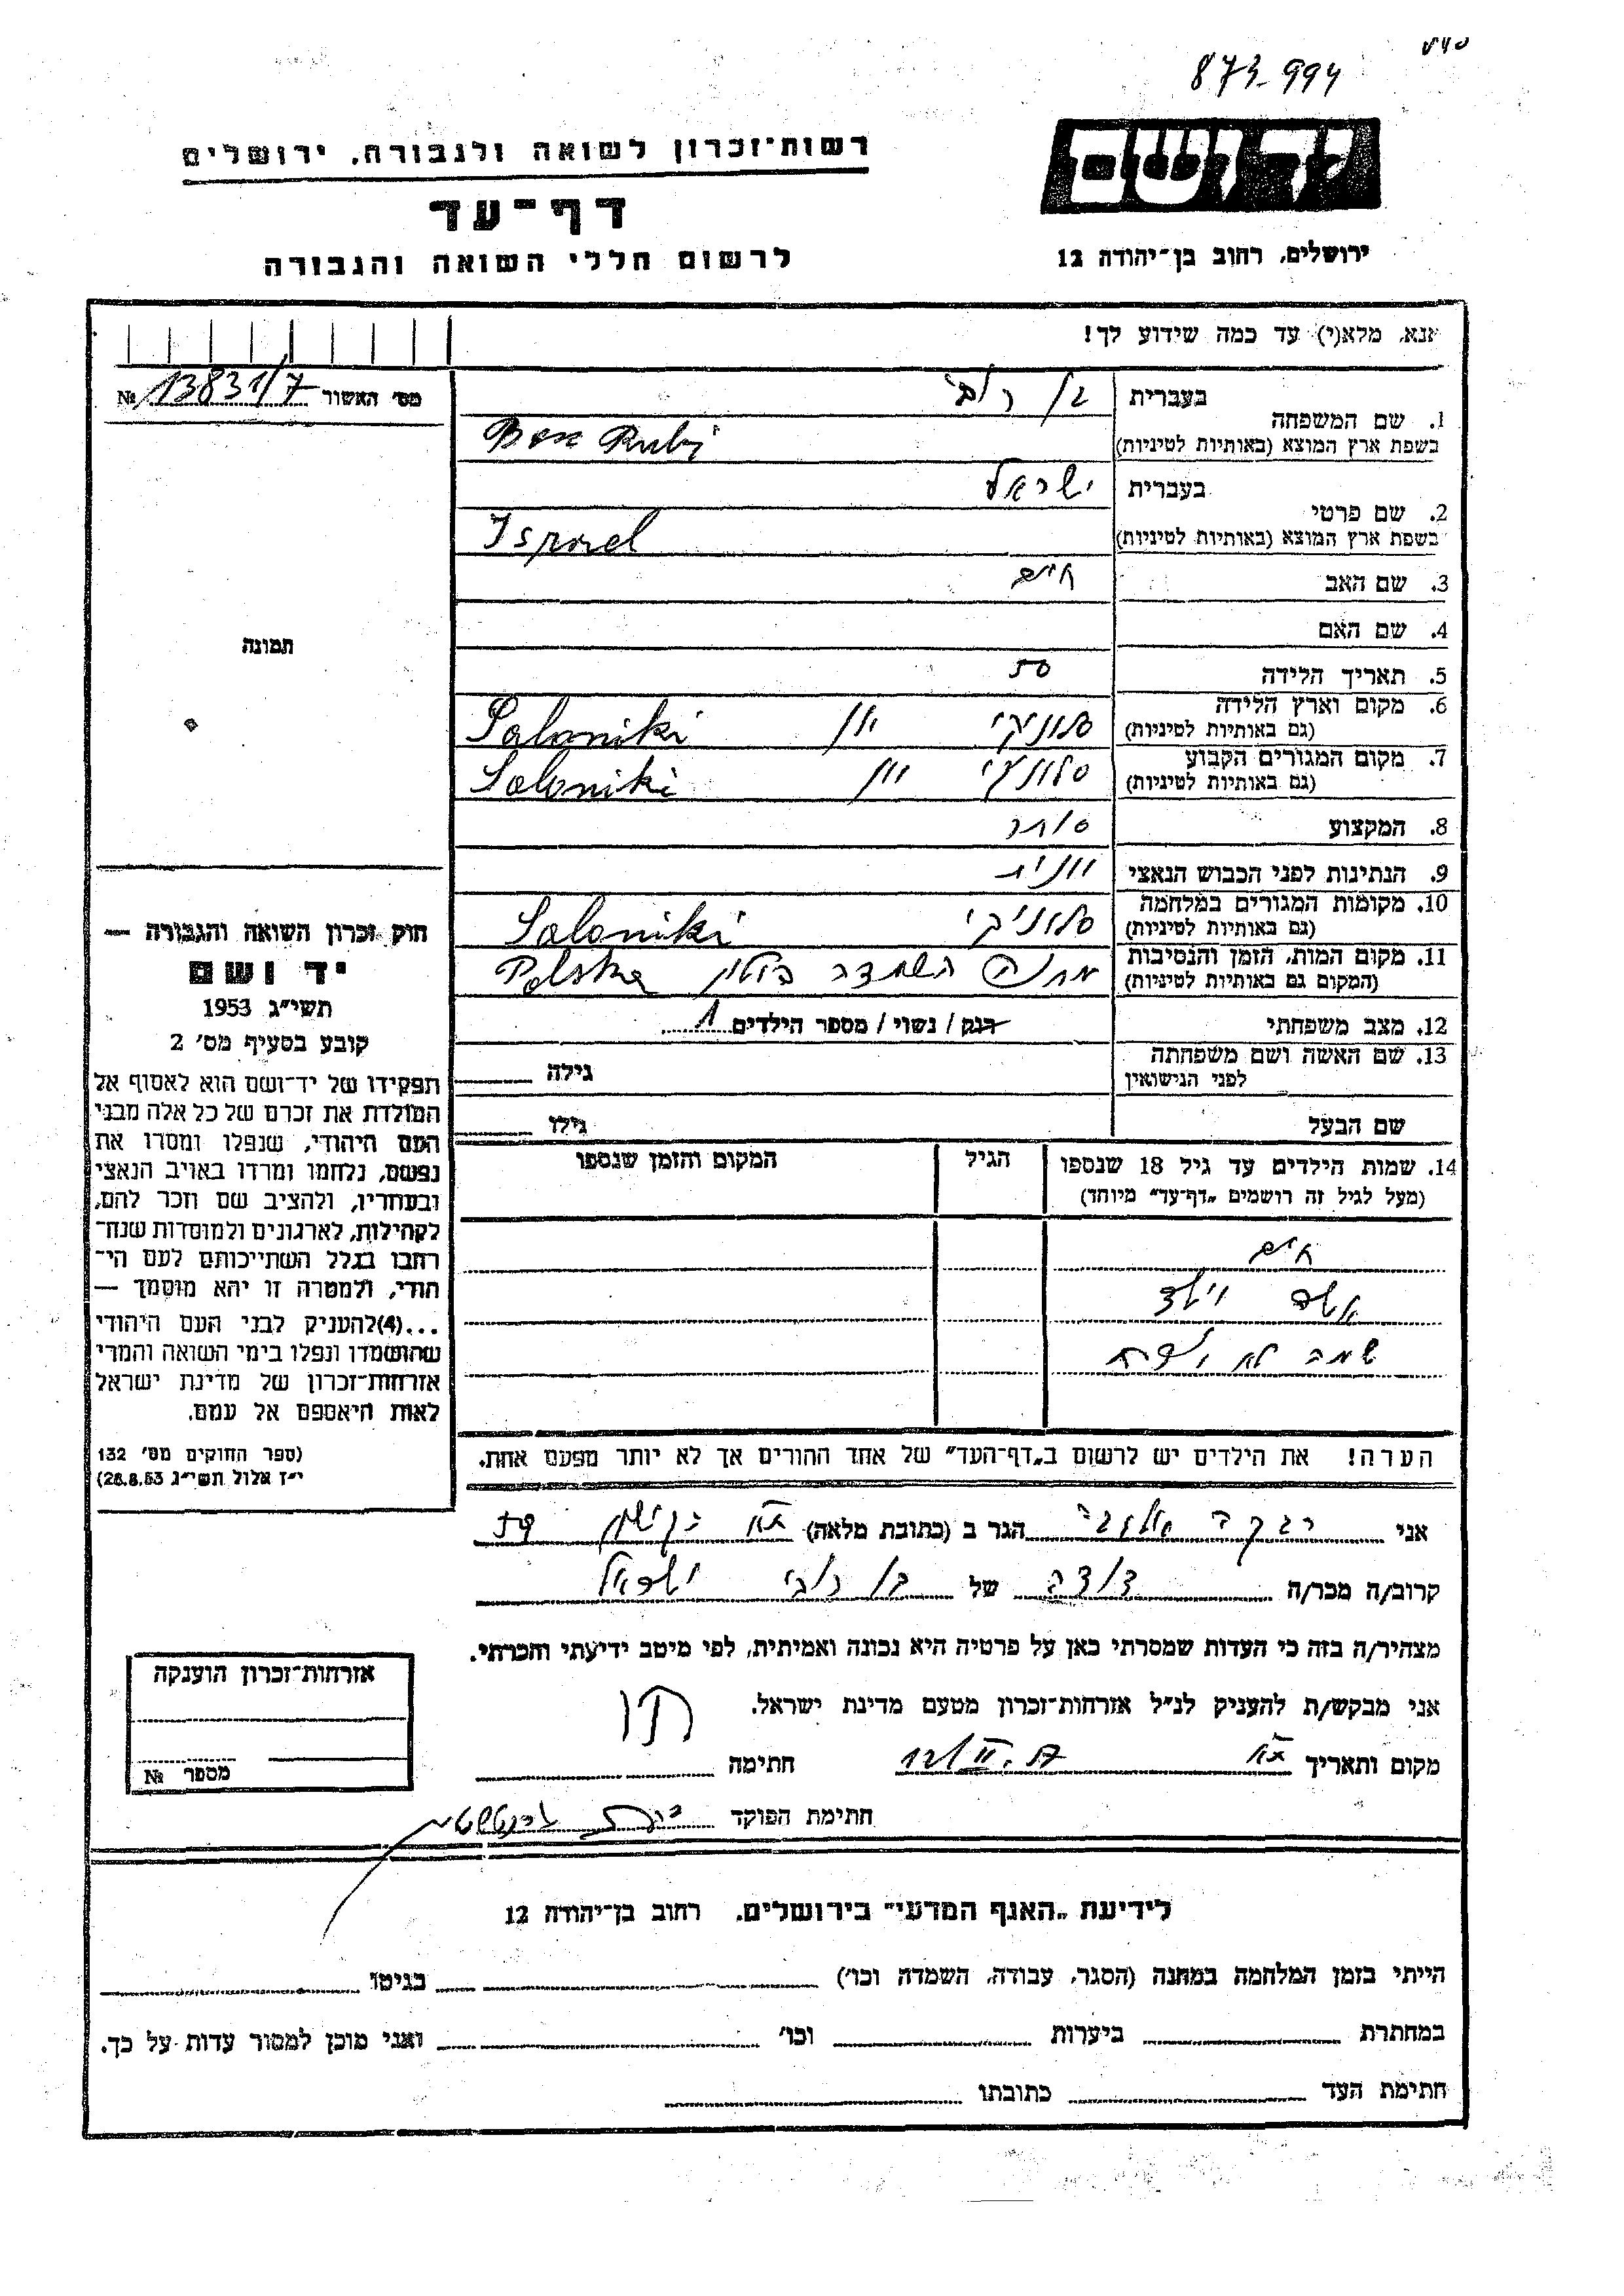 873-994
יד ושם
רשות־זכרון לשואה ולגבורה, ירושלים
דף־עד
לרשום חללי השואה והגבורה
ירושלים, רחוב בן־יהודה 12
אנא, מלא(י) עד כמה שידוע לך!
מס׳ האשור № 13831/7
1. שם המשפחה
בעברית בן רובי
בשפת ארץ המוצא (באותיות לטיניות) Ben Rubi
2. שם פרטי
בעברית ישראל
בשפת ארץ המוצא (באותיות לטיניות) Israel
3. שם האב חיים
4. שם האם
5. תאריך הלידה 50
6. מקום וארץ הלידה
(גם באותיות לטיניות) סלוניקי יון Saloniki
7. מקום המגורים הקבוע
(גם באותיות לטיניות) סלוניקי יון Saloniki
8. המקצוע סוחר
9. הנתינות לפני הכבוש הנאצי יונית
10. מקומות המגורים במלחמה
(גם באותיות לטיניות) סלוניקי Saloniki
11. מקום המות, הזמן והנסיבות
(המקום גם באותיות לטיניות) מחנה השמדה פולין Polska
12. מצב משפחתי רווק / נשוי / מספר הילדים 1
13. שם האשה ושם משפחתה
לפני הנישואין גילה
שם הבעל גילו
14. שמות הילדים עד גיל 18 שנספו הגיל המקום והזמן שנספו
(מעל לגיל זה רושמים „דף־עד״ מיוחד)
חיים
אשה וילד
שמה לא ידוע
הערה! את הילדים יש לרשום ב„דף־העד״ של אחד ההורים אך לא יותר מפעם אחת.
תמונה
חוק זכרון השואה והגבורה —
יד ושם
תשי״ג 1953
קובע בסעיף מס׳ 2
תפקידו של יד־ושם הוא לאסוף אל
המולדת את זכרם של כל אלה מבני
העם היהודי, שנפלו ומסרו את
נפשם, נלחמו ומרדו באויב הנאצי
ובעוזריו, ולהציב שם וזכר להם,
לקהילות, לארגונים ולמוסדות שנח־
רבו בגלל השתייכותם לעם הי־
הודי, ולמטרה זו יהא מוסמך —
...(4) להעניק לבני העם היהודי
שהושמדו ונפלו בימי השואה והמרי
אזרחות־זכרון של מדינת ישראל
לאות היאספם אל עמם.
(ספר החוקים מס׳ 132
י״ז אלול תשי״ג 28.8.53)
אני רבקה הגר ב (כתובת מלאה) תא
קרוב/ה מכר/ה דודה של בן רובי ישראל
מצהיר/ה בזה כי העדות שמסרתי כאן על פרטיה היא נכונה ואמיתית, לפי מיטב ידיעתי והכרתי.
אני מבקש/ת להעניק לנ״ל אזרחות־זכרון מטעם מדינת ישראל.
מקום ותאריך תא 12/II.57 חתימה
חתימת הפוקד
אזרחות־זכרון הוענקה
מספר №
לידיעת „האגף המדעי״ בירושלים, רחוב בן־יהודה 12
הייתי בזמן המלחמה במחנה (הסגר, עבודה, השמדה וכו׳) בגיטו
במחתרת ביערות וכו׳ ואני מוכן למסור עדות על כך.
חתימת העד כתובתו